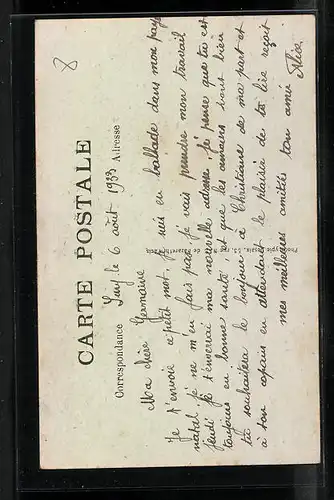 CARTE POSTALE
Correspondance
Adresse
8
Luy le 6 août 1933
Ma chère Germaine
Je t'envoie ce petit mot, je suis en ballade dans mon pays
natal je ne m'en fais pas je vais prendre mon travail
jeudi je t'enverrai ma nouvelle adresse je pense que tu est
toujours en bonne santé et que les amours vont bien
tu souhaitera le bonjour à Christiane de ma part et
à ton copain en attendant le plaisir de te lire reçoit
mes meilleures amitiés ton amie
Alice